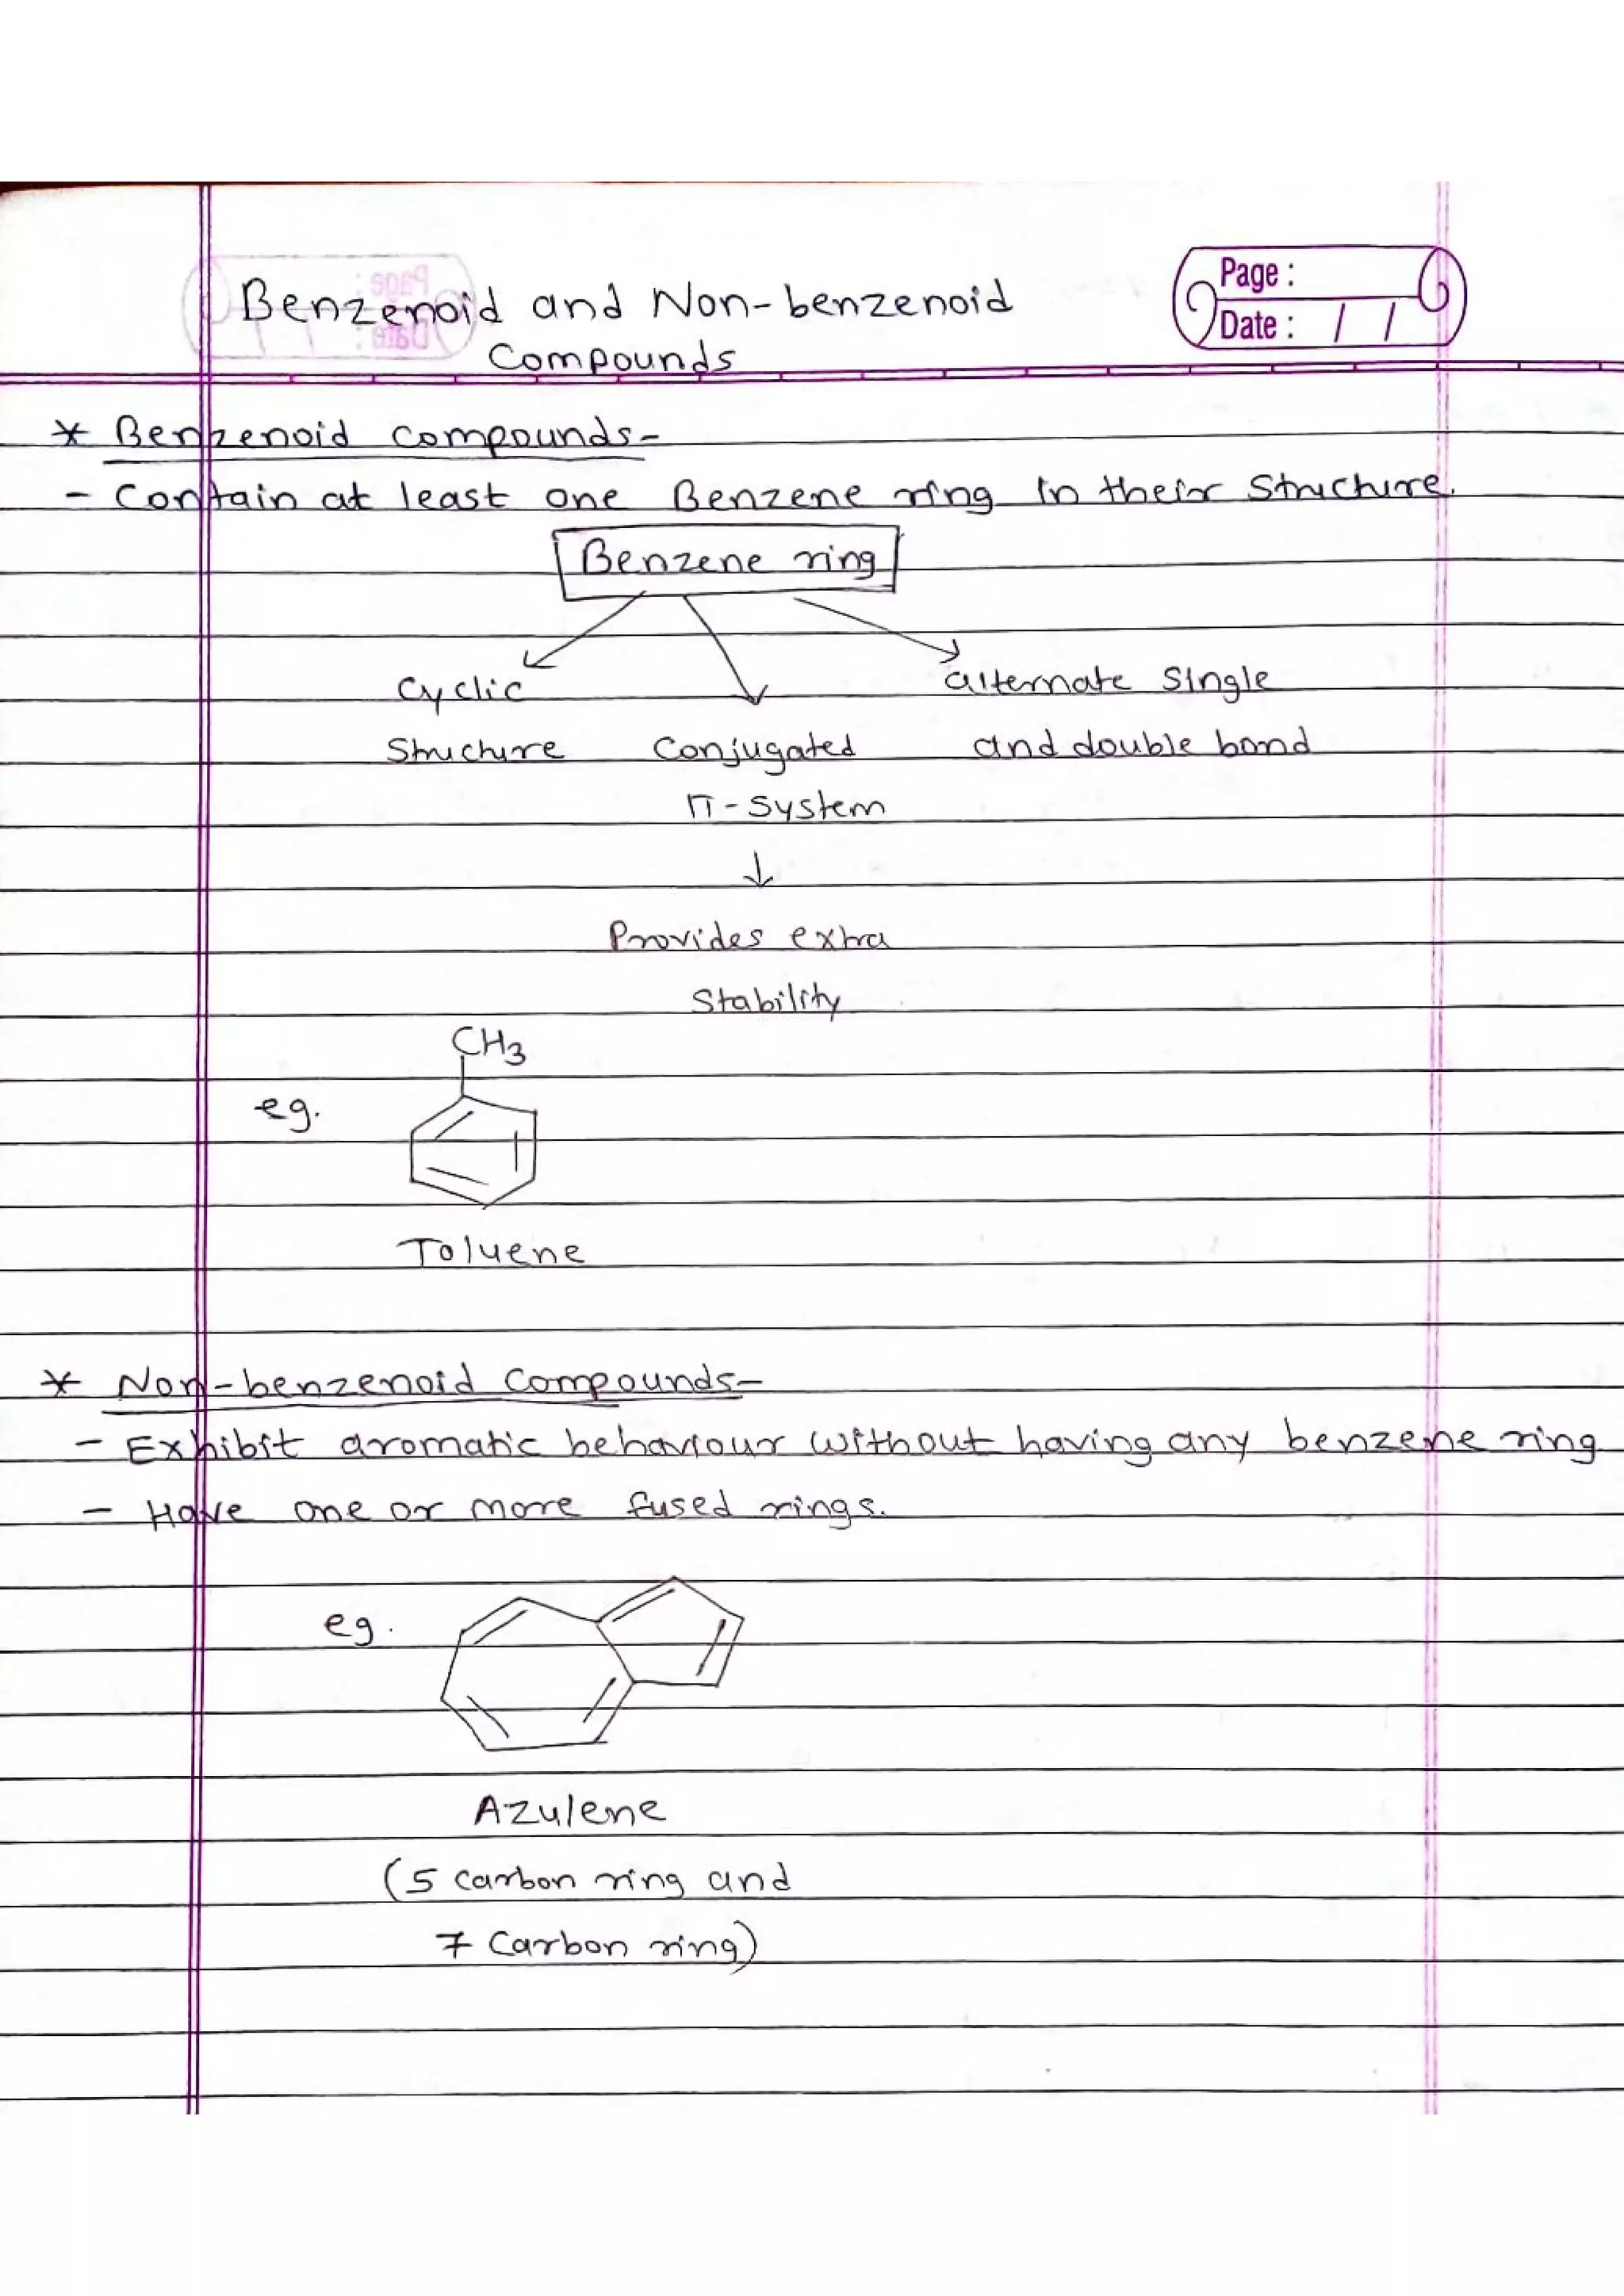 Page :
Date : / /
Benzenoid and Non-benzenoid
Compounds
* Benzenoid compounds-
- Contain at least one Benzene ring in their structure.
Benzene ring
Cyclic
alternate single
structure
Conjugated
and double bond
π-system
↓
Provides extra
stability
CH3
eg.
Toluene
* Non-benzenoid compounds-
- Exhibit aromatic behaviour without having any benzene ring
- Have one or more fused rings.
eg.
Azulene
(5 carbon ring and
7 Carbon ring)